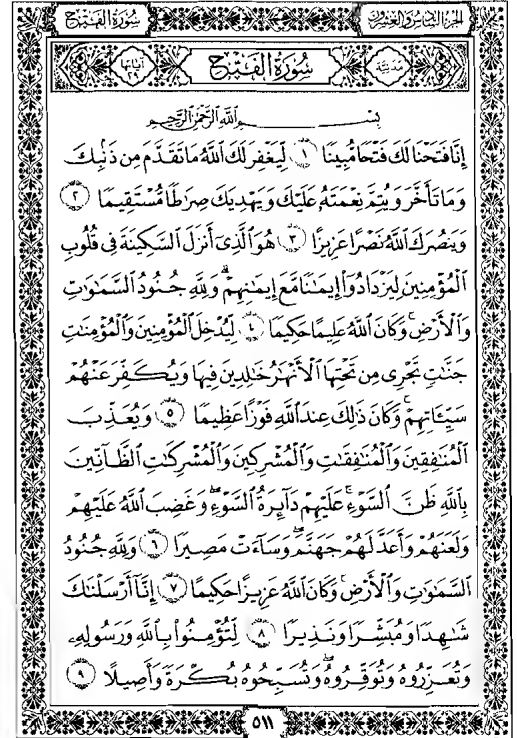 الجزء السادس والعشرون سورة الفتح
مدنية سُورَةُ الفَتْحِ آياتها ٢٩
بِسۡمِ ٱللَّهِ ٱلرَّحۡمَٰنِ ٱلرَّحِيمِ
إِنَّا فَتَحۡنَا لَكَ فَتۡحٗا مُّبِينٗا ١ لِّيَغۡفِرَ لَكَ ٱللَّهُ مَا تَقَدَّمَ مِن ذَنۢبِكَ
وَمَا تَأَخَّرَ وَيُتِمَّ نِعۡمَتَهُۥ عَلَيۡكَ وَيَهۡدِيَكَ صِرَٰطٗا مُّسۡتَقِيمٗا ٢
وَيَنصُرَكَ ٱللَّهُ نَصۡرًا عَزِيزًا ٣ هُوَ ٱلَّذِيٓ أَنزَلَ ٱلسَّكِينَةَ فِي قُلُوبِ
ٱلۡمُؤۡمِنِينَ لِيَزۡدَادُوٓاْ إِيمَٰنٗا مَّعَ إِيمَٰنِهِمۡۗ وَلِلَّهِ جُنُودُ ٱلسَّمَٰوَٰتِ
وَٱلۡأَرۡضِۚ وَكَانَ ٱللَّهُ عَلِيمًا حَكِيمٗا ٤ لِّيُدۡخِلَ ٱلۡمُؤۡمِنِينَ وَٱلۡمُؤۡمِنَٰتِ
جَنَّٰتٖ تَجۡرِي مِن تَحۡتِهَا ٱلۡأَنۡهَٰرُ خَٰلِدِينَ فِيهَا وَيُكَفِّرَ عَنۡهُمۡ
سَيِّـَٔاتِهِمۡۚ وَكَانَ ذَٰلِكَ عِندَ ٱللَّهِ فَوۡزًا عَظِيمٗا ٥ وَيُعَذِّبَ
ٱلۡمُنَٰفِقِينَ وَٱلۡمُنَٰفِقَٰتِ وَٱلۡمُشۡرِكِينَ وَٱلۡمُشۡرِكَٰتِ ٱلظَّآنِّينَ
بِٱللَّهِ ظَنَّ ٱلسَّوۡءِۚ عَلَيۡهِمۡ دَآئِرَةُ ٱلسَّوۡءِۖ وَغَضِبَ ٱللَّهُ عَلَيۡهِمۡ
وَلَعَنَهُمۡ وَأَعَدَّ لَهُمۡ جَهَنَّمَۖ وَسَآءَتۡ مَصِيرٗا ٦ وَلِلَّهِ جُنُودُ
ٱلسَّمَٰوَٰتِ وَٱلۡأَرۡضِۚ وَكَانَ ٱللَّهُ عَزِيزًا حَكِيمًا ٧ إِنَّآ أَرۡسَلۡنَٰكَ
شَٰهِدٗا وَمُبَشِّرٗا وَنَذِيرٗا ٨ لِّتُؤۡمِنُواْ بِٱللَّهِ وَرَسُولِهِۦ
وَتُعَزِّرُوهُ وَتُوَقِّرُوهُۚ وَتُسَبِّحُوهُ بُكۡرَةٗ وَأَصِيلًا ٩
٥١١